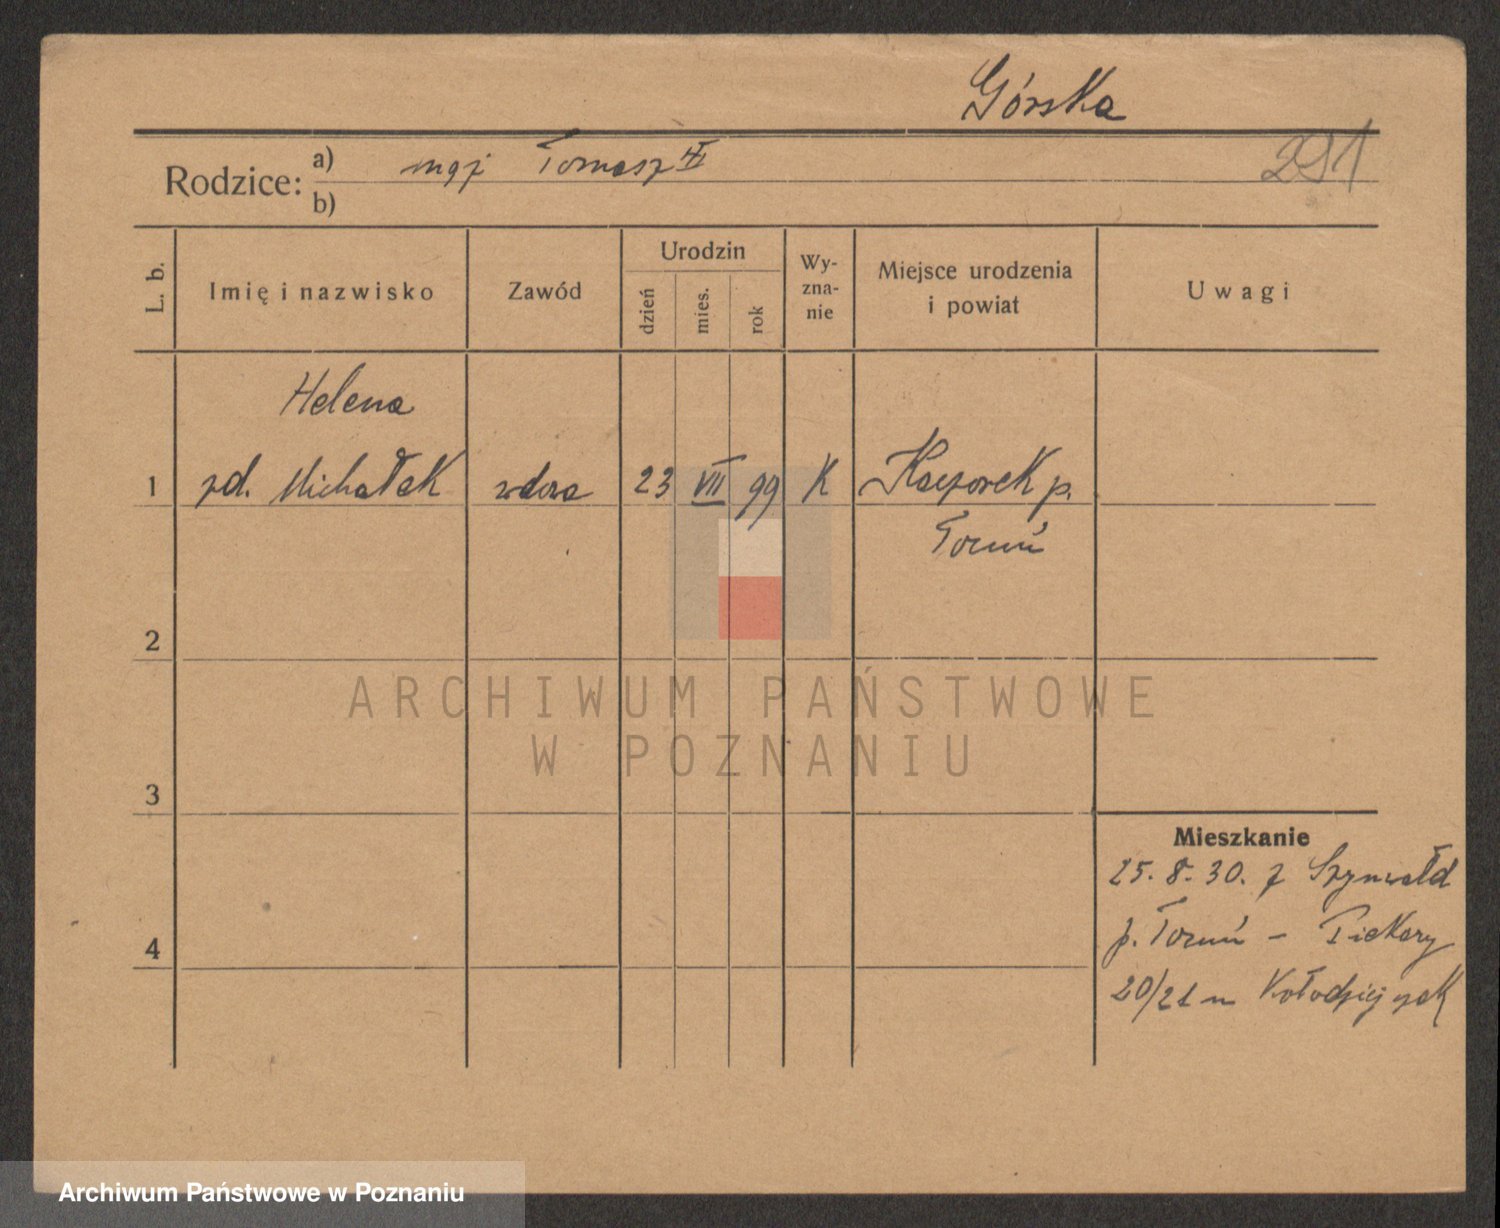 Górska
Rodzice: a) mąż Tomasz † 291
b)
L. b. Imię i nazwisko Zawód Urodzin dzień mies. rok Wy-zna-nie Miejsce urodzenia i powiat Uwagi
Helena
1 zd. Michałak wdowa 23 VII 99 K Kaczorek p.
Toruń
2
ARCHIWUM PAŃSTWOWE
W POZNANIU
3
Mieszkanie
25. 8. 30. z Szynwałd
4 p. Toruń - Piekary
20/21 u Kołodziejczak
Archiwum Państwowe w Poznaniu